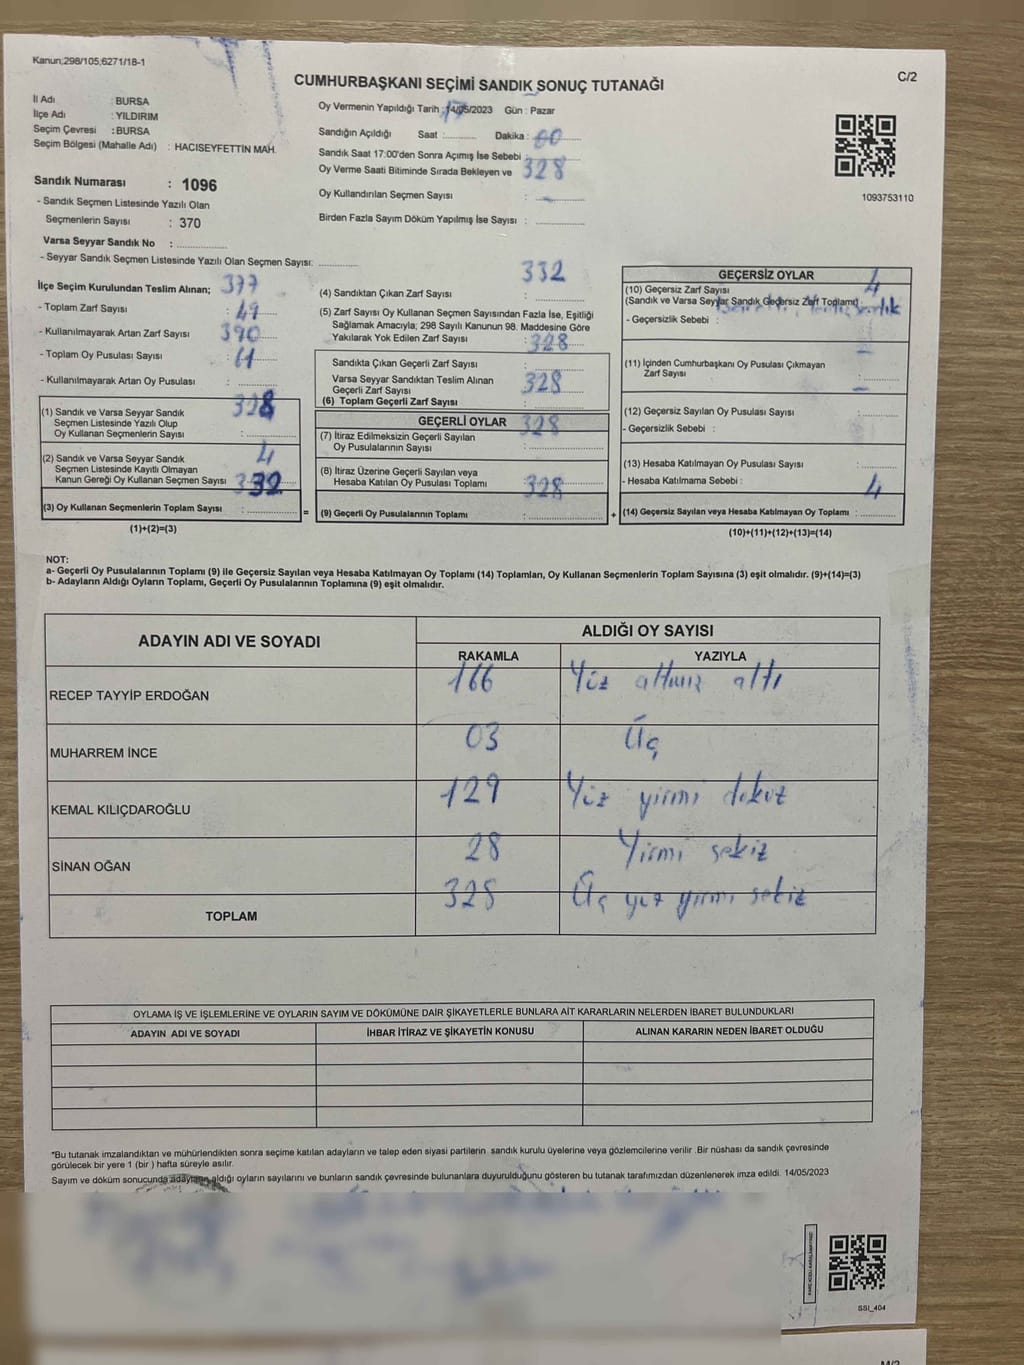 Kanun;298/105;6271/18-1
C/2
CUMHURBAŞKANI SEÇİMİ SANDIK SONUÇ TUTANAĞI
İl Adı : BURSA
İlçe Adı : YILDIRIM
Seçim Çevresi : BURSA
Seçim Bölgesi (Mahalle Adı) : HACISEYFETTİN MAH.
Sandık Numarası : 1096
- Sandık Seçmen Listesinde Yazılı Olan
Seçmenlerin Sayısı : 370
Varsa Seyyar Sandık No :
- Seyyar Sandık Seçmen Listesinde Yazılı Olan Seçmen Sayısı:
Oy Vermenin Yapıldığı Tarih : 14/05/2023 Gün : Pazar
Sandığın Açıldığı Saat : 17 Dakika : 00
Sandık Saat 17:00'den Sonra Açımış İse Sebebi :
Oy Verme Saati Bitiminde Sırada Bekleyen ve 328
Oy Kullandırılan Seçmen Sayısı : -
Birden Fazla Sayım Döküm Yapılmış İse Sayısı :
1093753110
İlçe Seçim Kurulundan Teslim Alınan; 377
- Toplam Zarf Sayısı : 49
- Kullanılmayarak Artan Zarf Sayısı : 390
- Toplam Oy Pusulası Sayısı : 61
- Kullanılmayarak Artan Oy Pusulası :
328
(1) Sandık ve Varsa Seyyar Sandık
Seçmen Listesinde Yazılı Olup
Oy Kullanan Seçmenlerin Sayısı :
4
(2) Sandık ve Varsa Seyyar Sandık
Seçmen Listesinde Kayıtlı Olmayan
Kanun Gereği Oy Kullanan Seçmen Sayısı 332
(3) Oy Kullanan Seçmenlerin Toplam Sayısı : =
(1)+(2)=(3)
332
(4) Sandıktan Çıkan Zarf Sayısı :
(5) Zarf Sayısı Oy Kullanan Seçmen Sayısından Fazla İse, Eşitliği
Sağlamak Amacıyla; 298 Sayılı Kanunun 98. Maddesine Göre
Yakılarak Yok Edilen Zarf Sayısı : 328
Sandıkta Çıkan Geçerli Zarf Sayısı :
Varsa Seyyar Sandıktan Teslim Alınan 328
Geçerli Zarf Sayısı :
(6) Toplam Geçerli Zarf Sayısı :
GEÇERLİ OYLAR 328
(7) İtiraz Edilmeksizin Geçerli Sayılan
Oy Pusulalarının Sayısı :
(8) İtiraz Üzerine Geçerli Sayılan veya
Hesaba Katılan Oy Pusulası Toplamı : 328
(9) Geçerli Oy Pusulalarının Toplamı : +
GEÇERSİZ OYLAR 4
(10) Geçersiz Zarf Sayısı
(Sandık ve Varsa Seyyar Sandık Geçersiz Zarf Toplamı)
- Geçersizlik Sebebi :
-
(11) İçinden Cumhurbaşkanı Oy Pusulası Çıkmayan
Zarf Sayısı :
-
(12) Geçersiz Sayılan Oy Pusulası Sayısı :
- Geçersizlik Sebebi :
(13) Hesaba Katılmayan Oy Pusulası Sayısı :
- Hesaba Katılmama Sebebi : 4
(14) Geçersiz Sayılan veya Hesaba Katılmayan Oy Toplamı :
(10)+(11)+(12)+(13)=(14)
NOT:
a- Geçerli Oy Pusulalarının Toplamı (9) ile Geçersiz Sayılan veya Hesaba Katılmayan Oy Toplamı (14) Toplamları, Oy Kullanan Seçmenlerin Toplam Sayısına (3) eşit olmalıdır. (9)+(14)=(3)
b- Adayların Aldığı Oyların Toplamı, Geçerli Oy Pusulalarının Toplamına (9) eşit olmalıdır.
ADAYIN ADI VE SOYADI ALDIĞI OY SAYISI
RAKAMLA YAZIYLA
RECEP TAYYİP ERDOĞAN 166 Yüz altmış altı
MUHARREM İNCE 03 Üç
KEMAL KILIÇDAROĞLU 129 Yüz yirmi dokuz
SİNAN OĞAN 28 Yirmi sekiz
TOPLAM 328 Üç yüz yirmi sekiz
OYLAMA İŞ VE İŞLEMLERİNE VE OYLARIN SAYIM VE DÖKÜMÜNE DAİR ŞİKAYETLERLE BUNLARA AİT KARARLARIN NELERDEN İBARET BULUNDUKLARI
ADAYIN ADI VE SOYADI İHBAR İTİRAZ VE ŞİKAYETİN KONUSU ALINAN KARARIN NEDEN İBARET OLDUĞU
*Bu tutanak imzalandıktan ve mühürlendikten sonra seçime katılan adayların ve talep eden siyasi partilerin sandık kurulu üyelerine veya gözlemcilerine verilir. Bir nüshası da sandık çevresinde
görülecek bir yere 1 (bir ) hafta süreyle asılır.
Sayım ve döküm sonucunda adayların aldığı oyların sayılarını ve bunların sandık çevresinde bulunanlara duyurulduğunu gösteren bu tutanak tarafımızdan düzenlenerek imza edildi. 14/05/2023
SSI_404